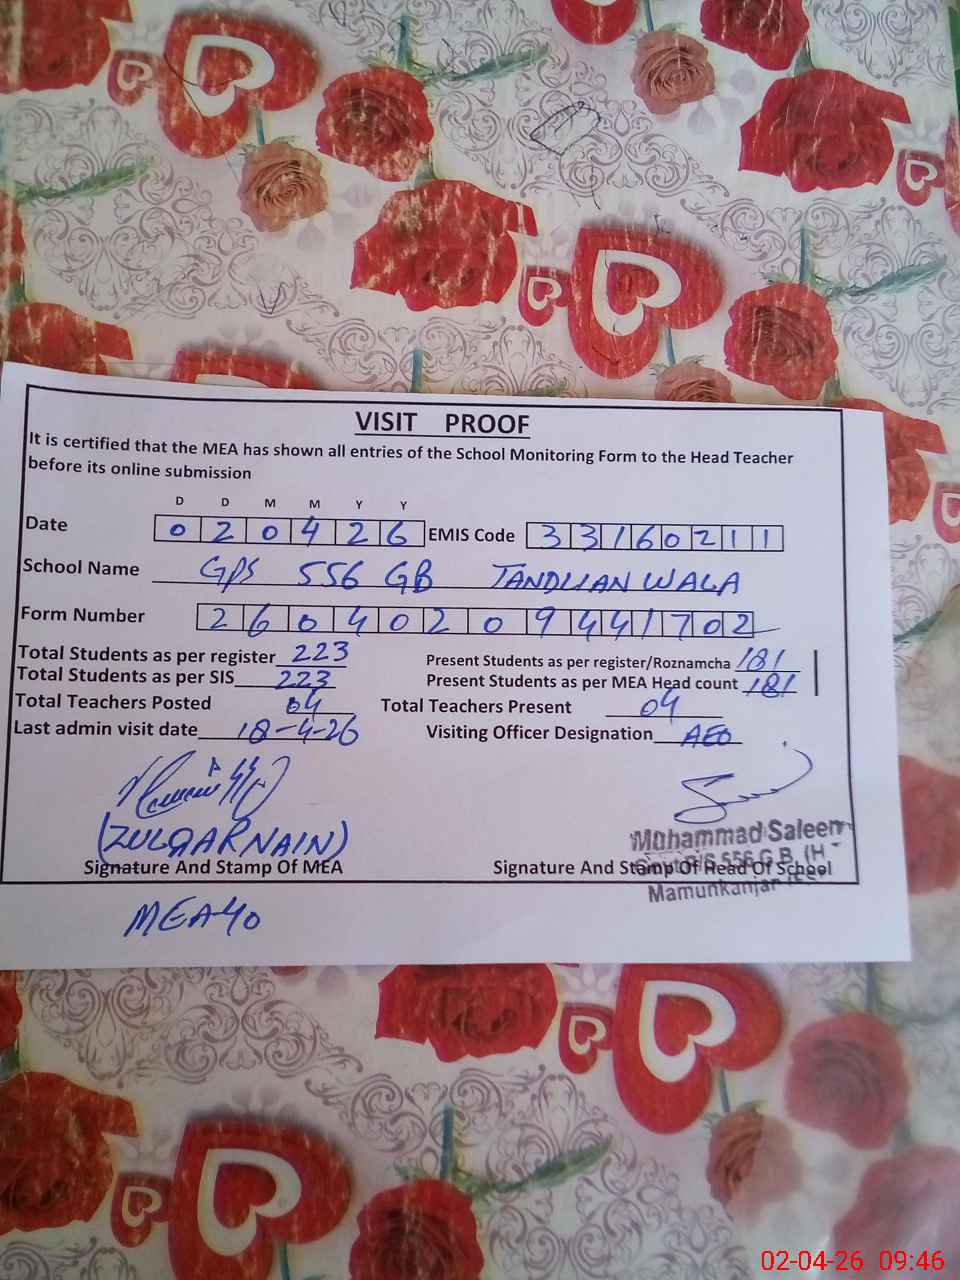 VISIT PROOF
It is certified that the MEA has shown all entries of the School Monitoring Form to the Head Teacher
before its online submission
D D M M Y Y
Date 020426 EMIS Code 33160211
School Name GPS 556 GB TANDLIAN WALA
Form Number 26040209441702
Total Students as per register 223 Present Students as per register/Roznamcha 181
Total Students as per SIS 223 Present Students as per MEA Head count 181
Total Teachers Posted 04 Total Teachers Present 04
Last admin visit date 18-4-26 Visiting Officer Designation AEO
(ZULQARNAIN)
Muhammad Saleem
556 G.B. (H
Signature And Stamp Of MEA Signature And Stamp Of Head Of School
Mamunkanjan
MEA40
02-04-26 09:46